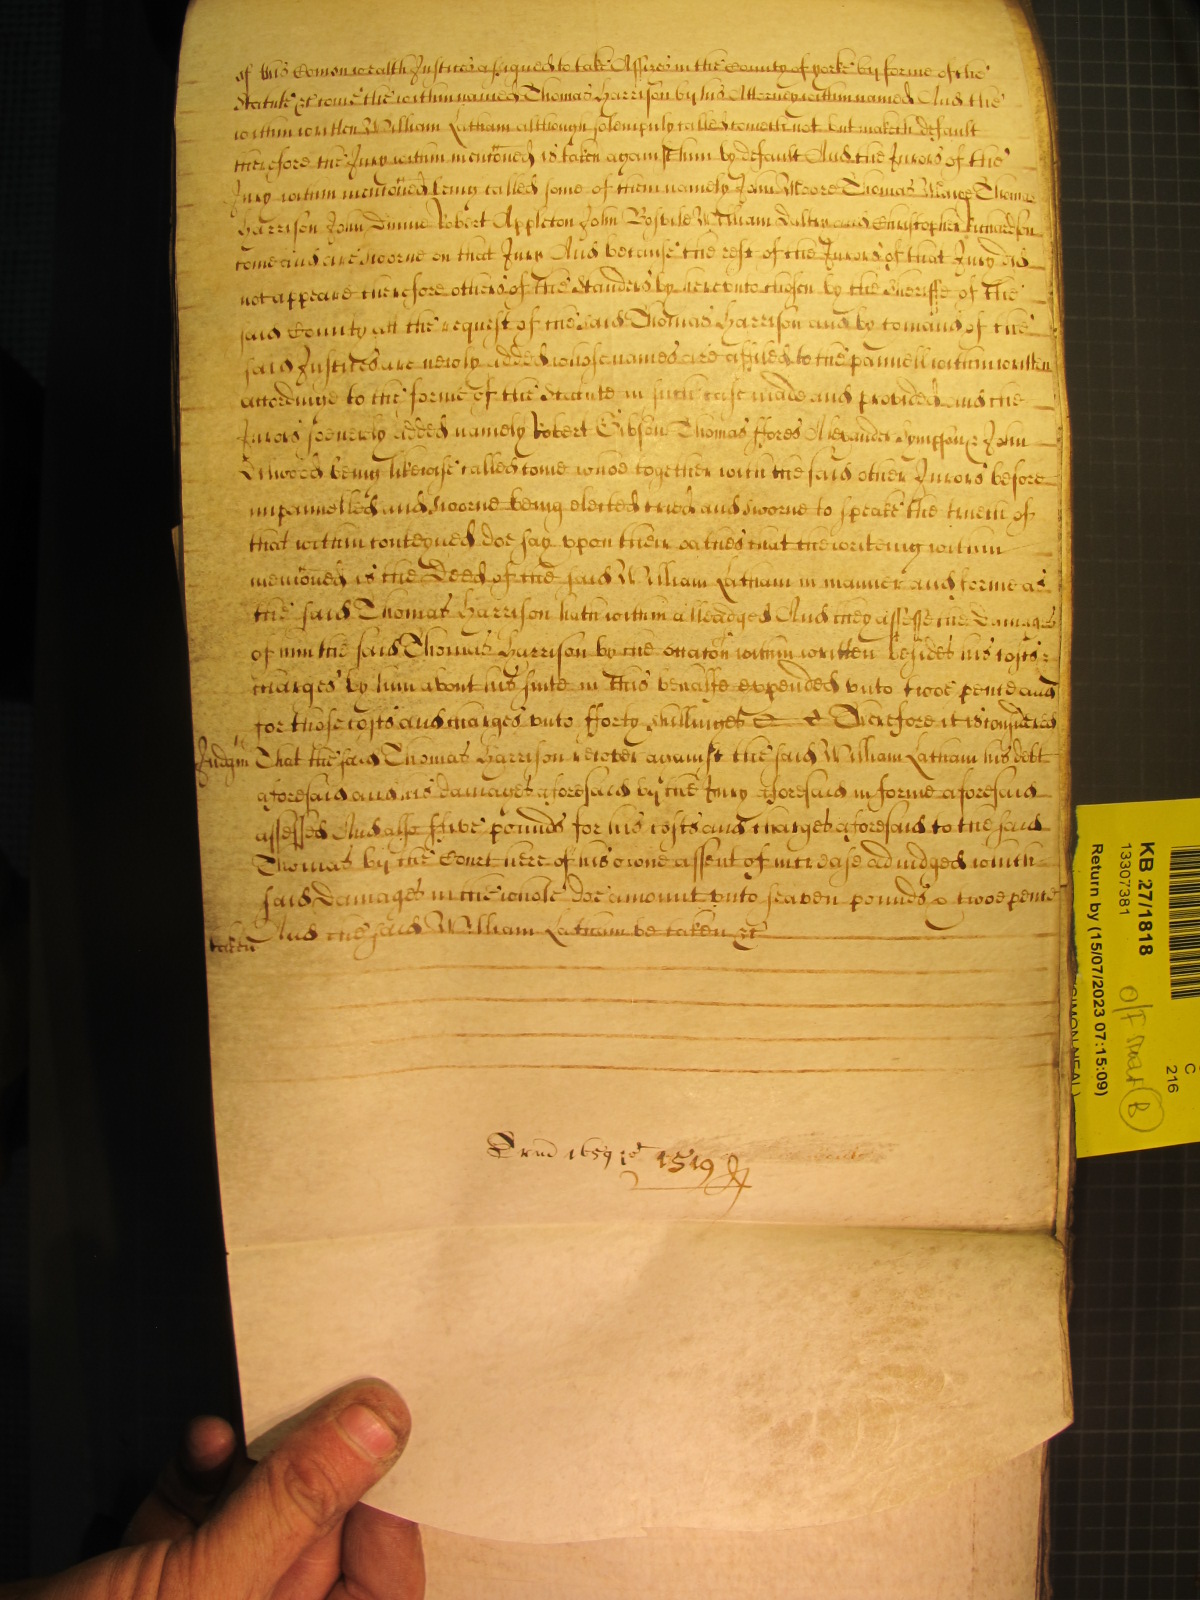 of this Comonwealth Justices assigned to take Assizes in the County of yorke by forme of the
Statute &c come the within named Thomas Harrison by his Attorney within named And the
within written William Latham although solempnly called cometh not but maketh default
therefore the Jury within menc̃oned is taken against him by default And the Jurors of the
Jury within menc̃oned being called some of them namely John Moore Thomas Thomas
Harrison John Dunne Robert Appleton John Bosvile William and Christopher Richardson
come and are sworne on that Jury And because the rest of the Jurors of that Jury did
not appeare therefore others of the Standers by hereunto chosen by the Sheriffe of the
said County att the request of the said Thomas Harrison and by com̃and of the
said Justices are newly added whose names are afiled to the pannell within written
according to the forme of the Statute in such case made and provided And the
Jurors soe newly added namely Robert Gibson Thomas ffores Alexander Sympson & John
being likewise called come whoe together with the said other Jurors before
impannelled and sworne being elected tried and sworne to speake the trueth of
that within conteyned doe say upon their oathes that the writeing within
menc̃oned is the Deed of the said William Latham in manner and forme as
the said Thomas Harrison hath within alleadged And they assesse the Damages
of him the said Thomas Harrison by the occac̃on within written besides his costs &
charges by him about his suite in this behalfe expended unto twoe pence and
for those costs and charges unto fforty shillinges Therefore it is considered
Judgm̃ That the said Thomas Harrison recover against the said William Latham his debt
aforesaid and his damages aforesaid by the Jury aforesaid in forme aforesaid
assessed And also ffive pounds for his costs and charges aforesaid to the said
Thomas by the Court here of his owne assent of increase adiudged which
said Damages in the whole doe amount unto seaven pounds & twoe pence
taken And the said William Latham be taken &c
Trin 1659 1519
KB 27/1818
13307381
Return by (15/07/2023 07:15:09)
(SIMON NEAL)
C
216
B